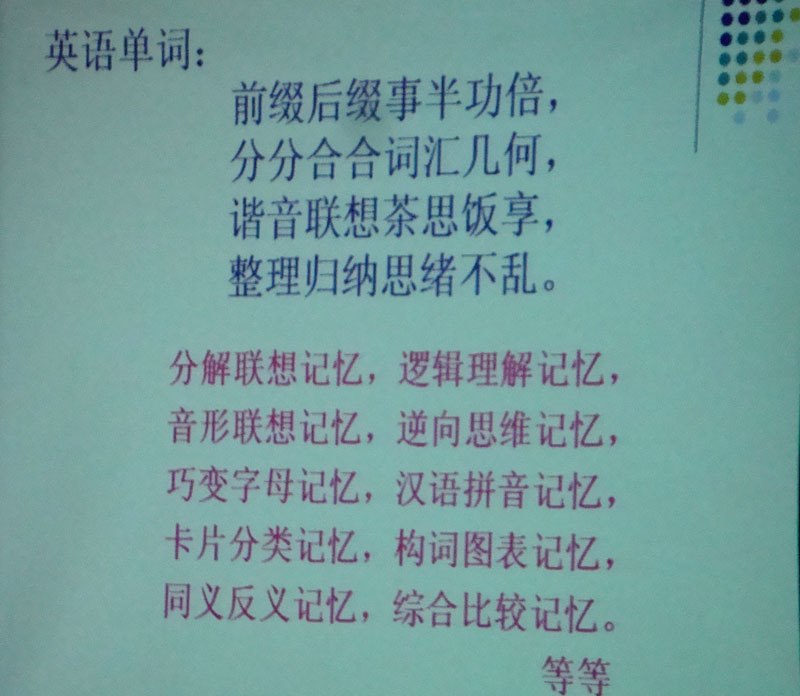 英语单词：
前缀后缀事半功倍，
分分合合词汇几何，
谐音联想茶思饭享，
整理归纳思绪不乱。
分解联想记忆，逻辑理解记忆，
音形联想记忆，逆向思维记忆，
巧变字母记忆，汉语拼音记忆，
卡片分类记忆，构词图表记忆，
同义反义记忆，综合比较记忆。
等等